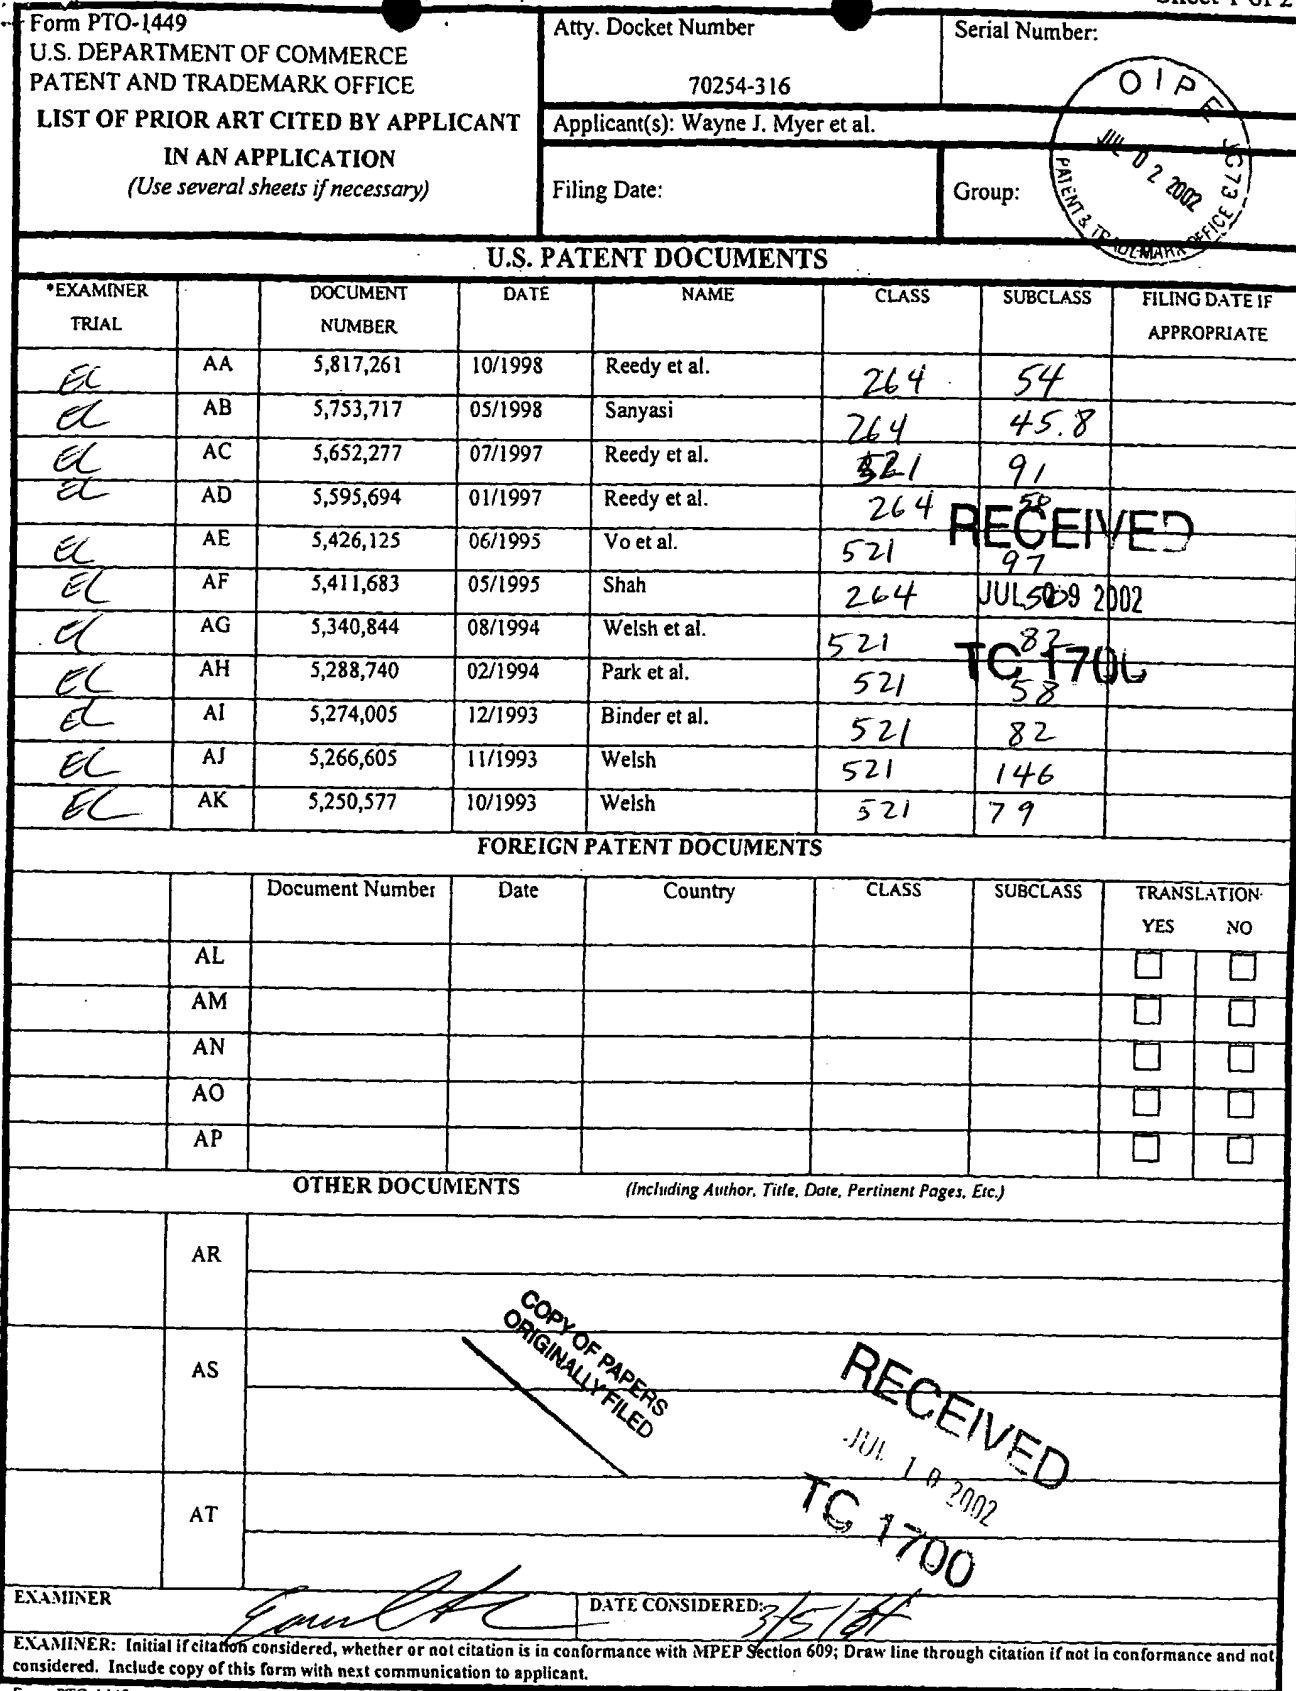 Form PTO-1449
U.S. DEPARTMENT OF COMMERCE
PATENT AND TRADEMARK OFFICE
LIST OF PRIOR ART CITED BY APPLICANT
IN AN APPLICATION
(Use several sheets if necessary)
Atty. Docket Number
70254-316
Serial Number:
Applicant(s): Wayne J. Myer et al.
Filing Date:
Group:
OIPE JC73
JUL 02 2002
PATENT & TRADEMARK OFFICE
U.S. PATENT DOCUMENTS
*EXAMINER TRIAL DOCUMENT NUMBER DATE NAME CLASS SUBCLASS FILING DATE IF APPROPRIATE
EL AA 5,817,261 10/1998 Reedy et al. 264 54
EL AB 5,753,717 05/1998 Sanyasi 264 45.8
EL AC 5,652,277 07/1997 Reedy et al. 521 91
EL AD 5,595,694 01/1997 Reedy et al. 264 50
EL AE 5,426,125 06/1995 Vo et al. 521 97
EL AF 5,411,683 05/1995 Shah 264
EL AG 5,340,844 08/1994 Welsh et al. 521 82
EL AH 5,288,740 02/1994 Park et al. 521 58
EL AI 5,274,005 12/1993 Binder et al. 521 82
EL AJ 5,266,605 11/1993 Welsh 521 146
EL AK 5,250,577 10/1993 Welsh 521 79
RECEIVED
JUL 09 2002
TC 1700
FOREIGN PATENT DOCUMENTS
Document Number Date Country CLASS SUBCLASS TRANSLATION
YES NO
AL
AM
AN
AO
AP
OTHER DOCUMENTS (Including Author, Title, Date, Pertinent Pages, Etc.)
AR
AS
AT
COPY OF PAPERS
ORIGINALLY FILED
RECEIVED
JUL 10 2002
TC 1700
EXAMINER
DATE CONSIDERED:
EXAMINER: Initial if citation considered, whether or not citation is in conformance with MPEP Section 609; Draw line through citation if not in conformance and not
considered. Include copy of this form with next communication to applicant.